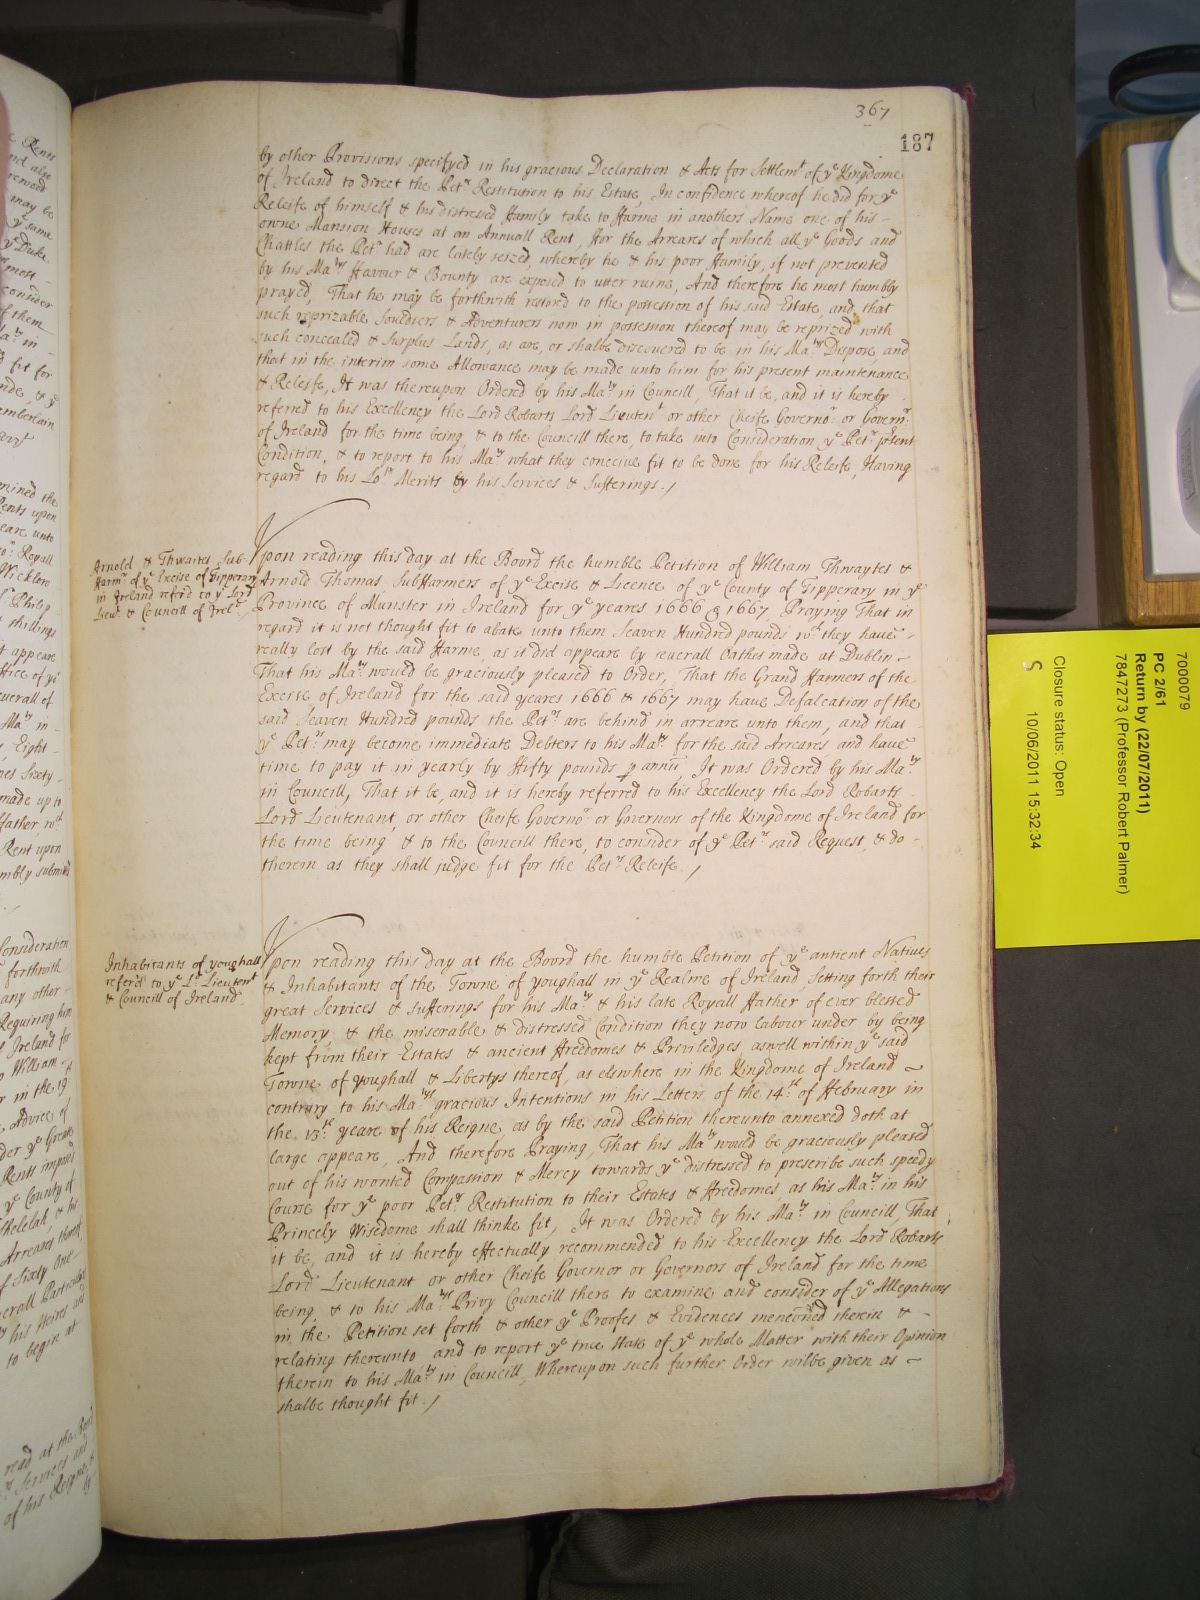 367
187
by other Provisions specifyed in his gracious Declaration & Acts for Settlemt of ye Kingdome
of Ireland to direct the Petrs Restitution to his Estate, In confidence whereof he did for ye
Releife of himself & his distressed ffamily take to ffarme in anothers Name one of his -
owne Mansion Houses at an Annuall Rent, ffor the Arreares of which all ye Goods and
Chattles the Petr had are lately seized, whereby he & his poor ffamily, if not prevented
by his Matys ffavour & Bounty are exposed to utter ruine, And therefore he most humbly
prayed, That he may be forthwith restored to the possession of his said Estate, and that
such reprizable Souldiers & Adventurers now in possession thereof may be reprized with
such concealed & Surplus Lands, as are, or shalbe discovered to be in his Matys Dispose, and
that in the interim some Allowance may be made unto him for his present maintenance
& Releife, It was thereupon Ordered by his Maty in Councill, That it be, and it is hereby
referred to his Excellency the Lord Robarts Lord Lieutent or other Cheife Governor or Governrs
of Ireland for the time being, & to the Councill there, to take into Consideration ye Petrs present
Condition, & to report to his Maty what they conceive fit to be done for his Releife, Having
regard to his Lops Merits by his Services & Sufferings. /
Arnold & Thwaites Sub-
ffarmrs of ye Excise of Tipperary
in Ireland referd to ye Lord
Lieut & Councill of Ireld /
Vpon reading this day at the Board the humble Petition of William Thwaytes &
Arnold Thomas, Subffarmers of ye Excise & Licence of ye County of Tipperary in ye
Province of Munster in Ireland for ye yeares 1666 & 1667, Praying That in
regard it is not thought fit to abate unto them Seaven Hundred pounds wch they have -
really lost by the said ffarme, as it did appeare by severall Oathes made at Dublin -
That his Maty would be graciously pleased to Order, That the Grand ffarmers of the
Excise of Ireland for the said yeares 1666 & 1667 may have Defalcation of the
said Seaven Hundred pounds the Petrs are behind in arreare unto them, and that
ye Petrs may become immediate Debters to his Maty for the said Arreares and have
time to pay it in yearly by ffifty pounds p annu, It was Ordered by his Maty
in Councill, That it be, and it is hereby referred to his Excellency the Lord Robarts
Lord Lieutenant, or other Cheife Governor or Governors of the Kingdome of Ireland for
the time being & to the Councill there, to consider of ye Petrs said Request, & do -
therein as they shall judge fit for the Petrs Releife /
Inhabitants of youghall
referd to ye Ld Lieutent
& Councill of Ireland
Vpon reading this day at the Board the humble Petition of ye antient Natives
& Inhabitants of the Towne of youghall in ye Realme of Ireland Setting forth their
great Services & sufferings for his Maty & his late Royall ffather of ever blessed
Memory, & the miserable & distressed Condition they now labour under by being
kept from their Estates & ancient ffreedomes & Priviledges, aswell within ye said
Towne of youghall & Libertys thereof, as elswhere in the Kingdome of Ireland -
contrary to his Matys gracious Intentions in his Letters of the 14th of ffebruary in
the 13th yeare of his Reigne, as by the said Petition thereunto annexed doth at
large appeare, And therefore Praying, That his Maty would be graciously pleased
out of his wonted Compassion & Mercy towards ye distressed to prescribe such speedy
Course for ye poor Petrs Restitution to their Estates & ffreedomes, as his Maty in his
Princely Wisedome shall thinke fit, It was Ordered by his Maty in Councill, That
it be, and it is hereby effectually recommended to his Excellency the Lord Robarts
Lord Lieutenant or other Cheife Governor or Governors of Ireland for the time
being & to his Matys Privy Councill there to examine and consider of ye Allegations
in the Petition set forth & other ye Proofes & Evidences menconed therein & -
relating thereunto and to report ye true State of ye whole Matter with their Opinion
therein to his Maty in Councill, Whereupon such further Order wilbe given as -
shalbe thought fit. /
7000079
PC 2/61
Return by (22/07/2011)
7847273 (Professor Robert Palmer)
Closure status: Open
S 10/06/2011 15:32:34